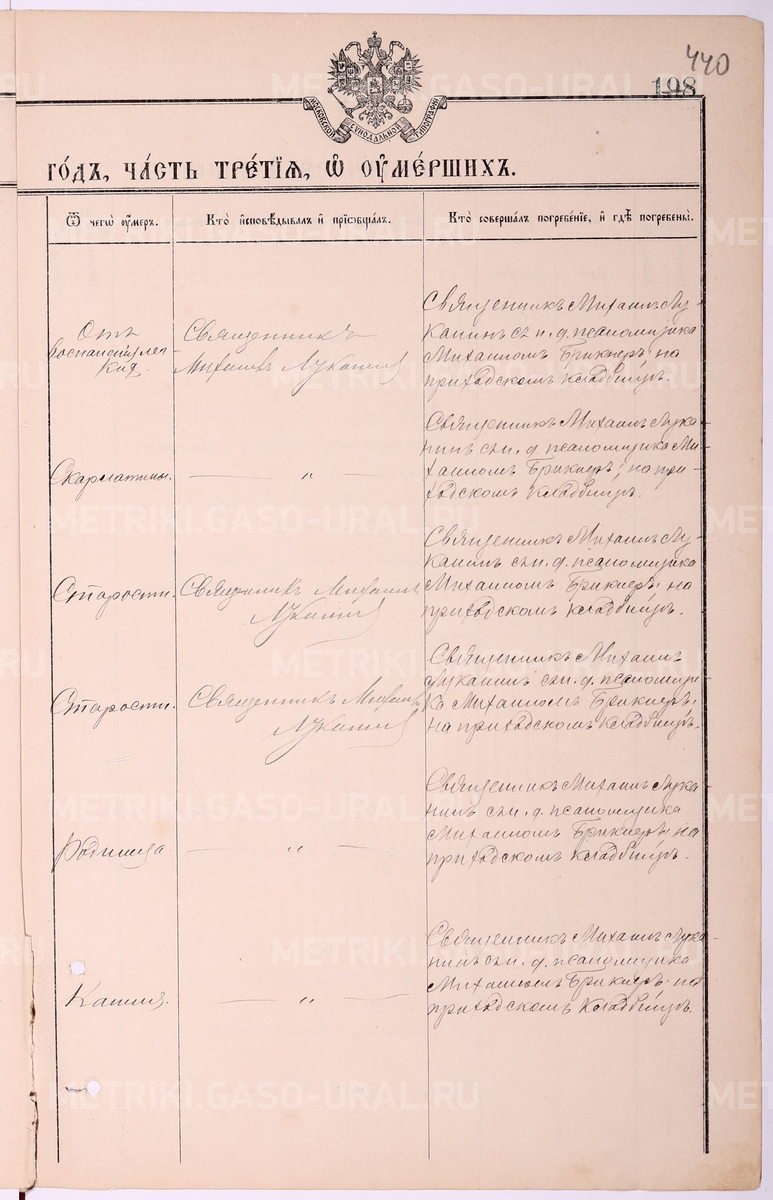 440
198
МОСКОВСКОЙ СѴНОДАЛЬНОЙ ТИПОГРАФІИ
го́дъ, ча́сть тре́тїѧ, ѡ҆ ᲂу҆ме́ршихъ.
Ѿ чегѡ̀ ᲂу҆́меръ.
Кто̀ и҆сповѣ́дывалъ и҆ прїѡбща́лъ.
Кто̀ соверша́лъ погребе́нїе, и҆ гдѣ̀ погребены̀.
Отъ
воспаленія лег
кихъ.
Священникъ
Михаилъ Луканинъ
Священникъ Михаилъ Лу-
канинъ съ и. д. псаломщика
Михаиломъ Брикнеръ; на
приходскомъ кладбищѣ.
Скарлатины.
— „ —
Священникъ Михаилъ Лука-
нинъ съ и. д. псаломщика Ми-
хаиломъ Брикнеръ; на при-
ходскомъ кладбищѣ.
Старости.
Священникъ Михаилъ
Луканинъ
Священникъ Михаилъ Лу-
канинъ съ и. д. псаломщика
Михаиломъ Брикнеръ; на
приходскомъ кладбищѣ.
Старости.
Священникъ Михаилъ
Луканинъ
Священникъ Михаилъ
Луканинъ съ и. д. псаломщи-
ка Михаиломъ Брикнеръ;
на приходскомъ кладбищѣ.
Родимца.
— „ —
Священникъ Михаилъ Лука-
нинъ съ и. д. псаломщика
Михаиломъ Брикнеръ; на
приходскомъ кладбищѣ.
Кашля.
— „ —
Священникъ Михаилъ Лука-
нинъ съ и. д. псаломщика
Михаиломъ Брикнеръ; на
приходскомъ кладбищѣ.
METRIKI.GASO-URAL.RU